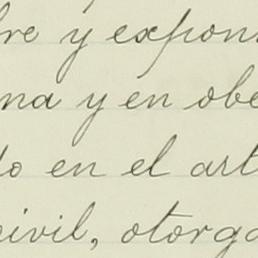 re y expon
na y en obe
do en el art
civil, otorga